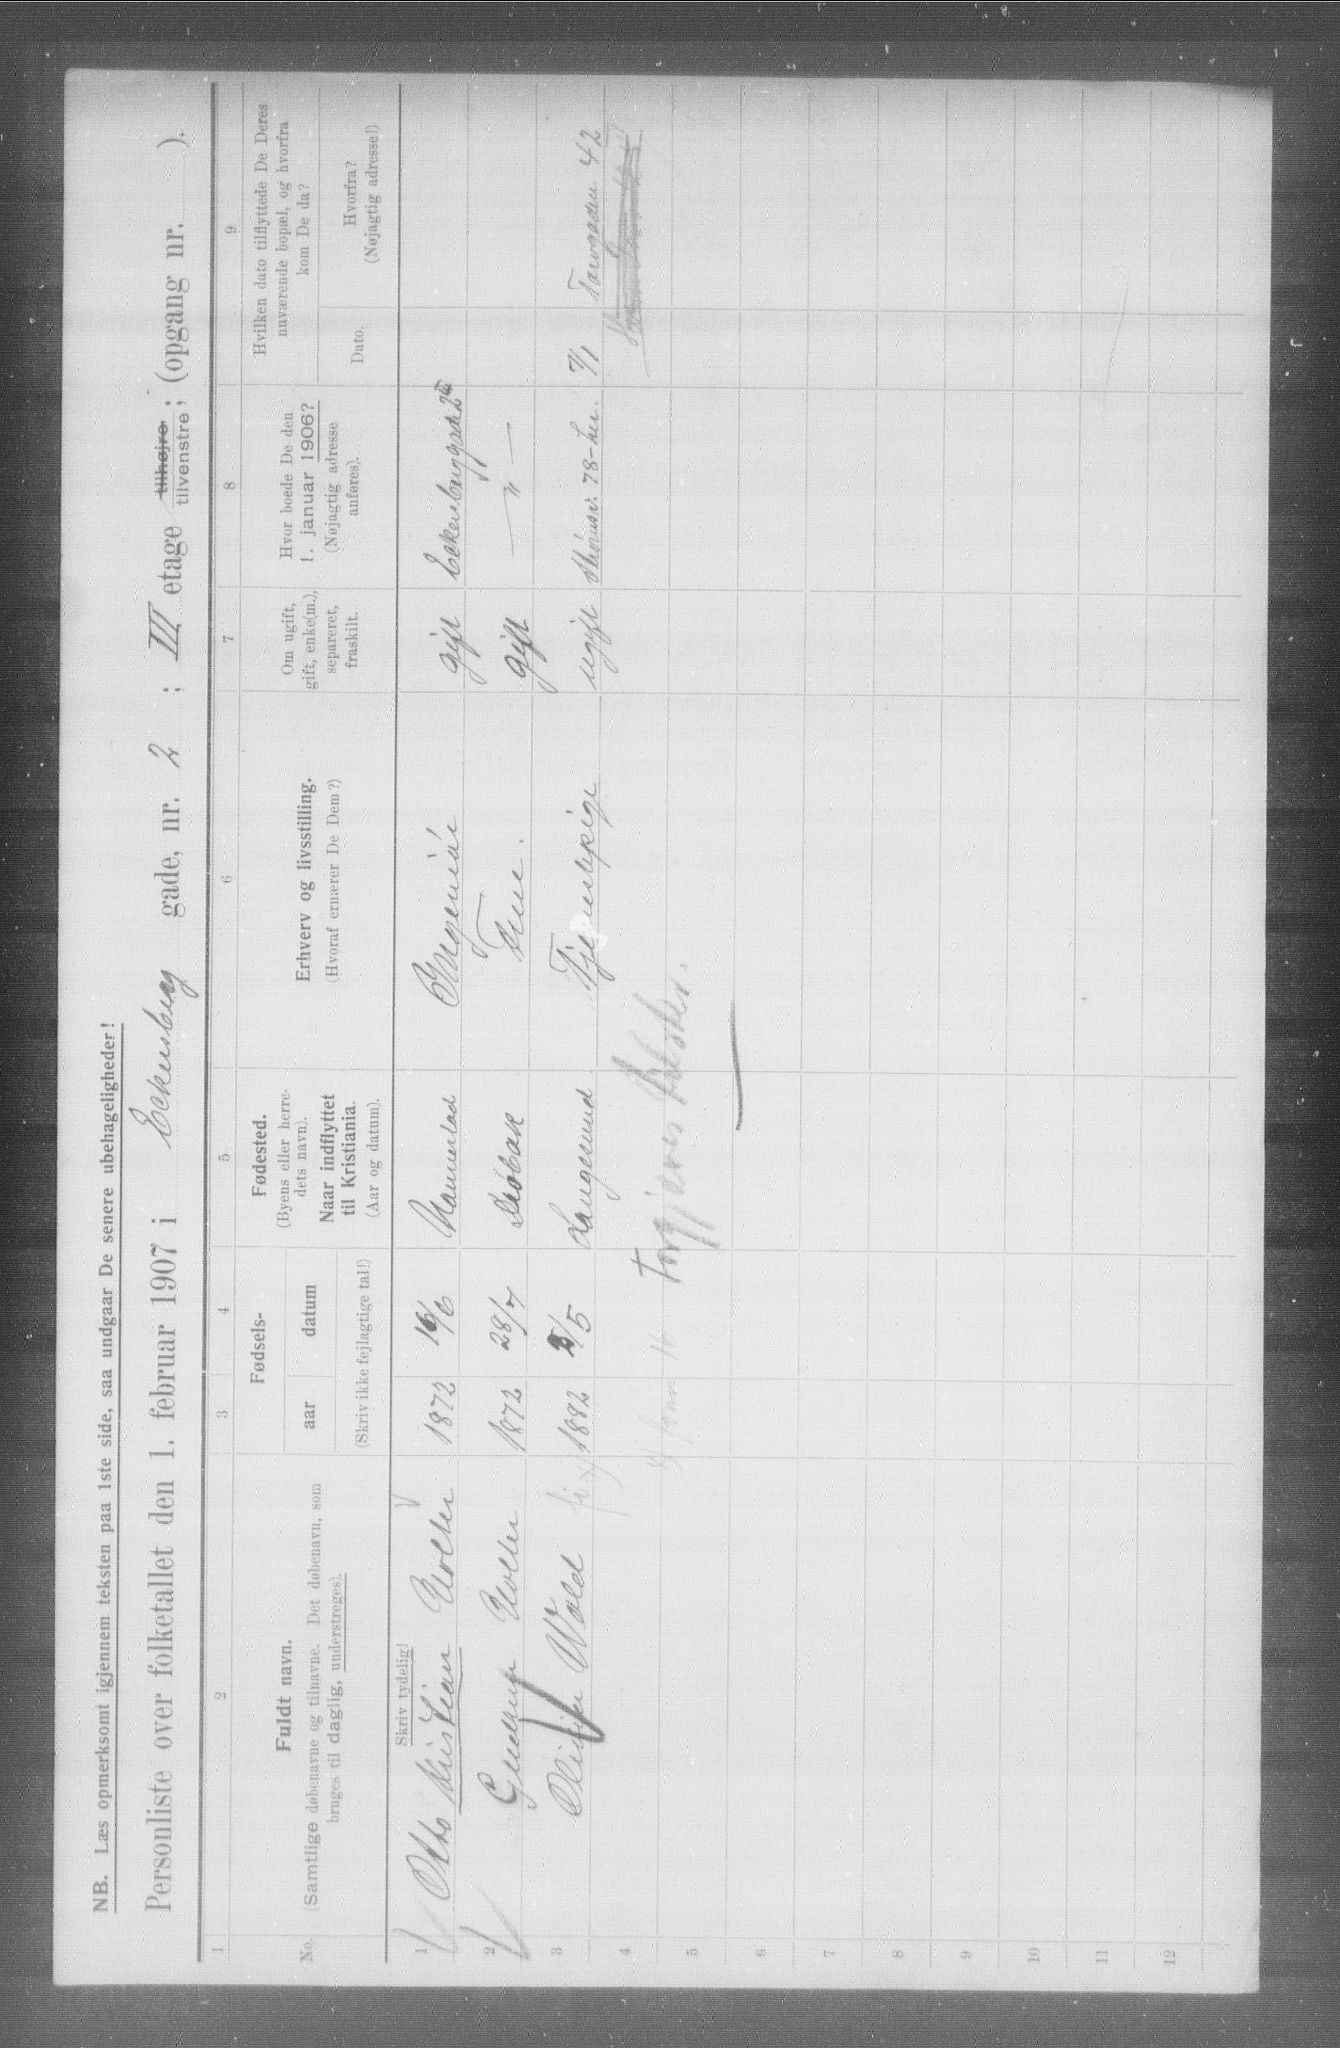 NB. Læs opmerksomt igjennem teksten paa 1ste side, saa undgaar De senere ubehageligheder!
Personliste over folketallet den 1. februar 1907 i Eckersberg gade, nr. 2 ; III etage tilhøjre tilvenstre; (opgang nr. ).
1 2 3 4 5 6 7 8 9
No.
Fuldt navn.
(Samtlige døbenavne og tilnavne. Det døbenavn, som
bruges til daglig, understreges).
Fødsels-
aar datum
(Skriv ikke fejlagtige tal!)
Fødested.
(Byens eller herre-
dets navn).
Naar indflyttet
til Kristiania.
(Aar og datum).
Erhverv og livsstilling.
(Hvoraf ernærer De Dem?)
Om ugift,
gift, enke(m.),
separeret,
fraskilt.
Hvor boede De den
1. januar 1906?
(Nøjagtig adresse
anføres).
Hvilken dato tilflyttede De Deres
nuværende bopæl, og hvorfra
kom De da?
Dato.
Hvorfra?
(Nøjagtig adresse!)
Skriv tydelig!
1 Otto Kristian 1872 16/6 Ingeniør gift Eckersberggade 2
2 Gudrun 1872 28/7 Drøbak Frue. gift — " —
3 Wold 1882 5/5 Langesund Tjenestepige ugift 78 7/1 42
4
5
6
7
8
9
10
11
12